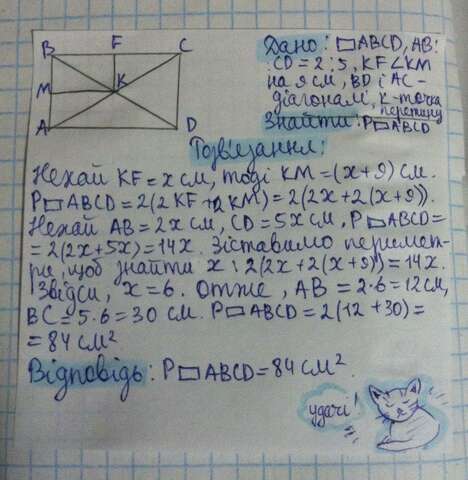 B F C
M K
A D
Дано: ▭ABCD, AB:
:CD = 2:5, KF<KM
на 9 см, BD і AC-
діагоналі, K-точка
перетину
Знайти: P▭ABCD
Розв'язання:
Нехай KF=x см, тоді KM=(x+9) см.
P▭ABCD=2(2KF+2KM)=2(2x+2(x+9)).
Нехай AB=2x см, CD=5x см, P▭ABCD=
=2(2x+5x)=14x. Зіставимо перимет-
ри, щоб знайти x: 2(2x+2(x+9))=14x.
Звідси, x=6. Отже, AB=2·6=12 см,
BC=5·6=30 см. P▭ABCD=2(12+30)=
=84 см²
Відповідь: P▭ABCD=84 см².
удачі!